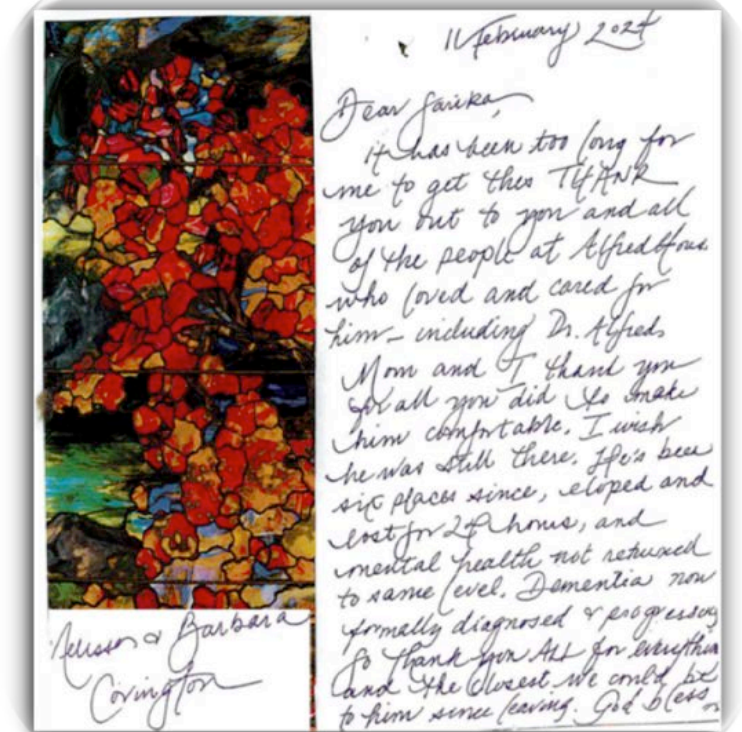 11 February 2024
Dear Sarika,
it has been too long for
me to get this THANK
you out to you and all
of the people at AlfredHouse
who loved and cared for
him – including Dr. Alfred.
Mom and I thank you
for all you did to make
him comfortable. I wish
he was still there. He's been
six places since, eloped and
lost for 24 hours, and
mental health not returned
to same level. Dementia now
formally diagnosed & progressing
So thank you ALL for everything
and the closest we could be
to him since leaving. God bless
Melissa & Barbara
Covington